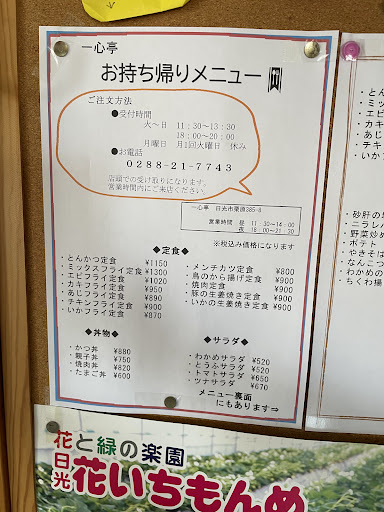 一心亭
お持ち帰りメニュー
ご注文方法
●受付時間
火～日 11:30～13:30
18:00～20:00
月曜日 月1回火曜日 休み
●お電話
0288-21-7743
店頭での受け取りになります。
営業時間内にご来店ください。
一心亭 日光市栗原385-8
営業時間 昼 11:30～14:00
夜 18:00～21:30
※税込み価格になります
◆定食◆
・とんかつ定食 ¥1150
・ミックスフライ定食 ¥1300
・エビフライ定食 ¥1020
・カキフライ定食 ¥950
・あじフライ定食 ¥890
・チキンカツ定食 ¥900
・いかフライ定食 ¥870
・メンチカツ定食 ¥800
・鳥のから揚げ定食 ¥900
・焼肉定食 ¥900
・豚の生姜焼き定食 ¥900
・いかの生姜焼き定食 ¥900
◆丼物◆
・かつ丼 ¥880
・親子丼 ¥750
・焼肉丼 ¥820
・たまご丼 ¥600
◆サラダ◆
・わかめサラダ ¥520
・とうふサラダ ¥520
・トマトサラダ ¥650
・ツナサラダ ¥670
メニュー裏面
にもあります⇒
・とん
・ミック
・エビ
・カキ
・あじ
・チキン
・いか
・砂肝の
・ニラレ
・野菜炒め
・ポテト
・やきそば
・なんこつ
・わかめの
・ちくわ揚
花と緑の楽園
日光 花いちもんめ